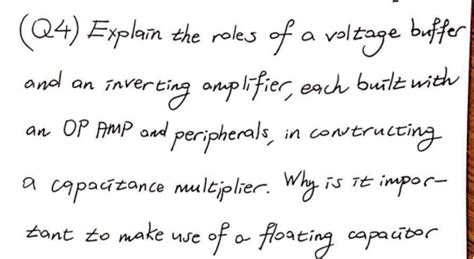 (Q4) Explain the roles of a voltage buffer
and an inverting amplifier, each built with
an OP AMP and peripherals, in constructing
a capacitance multiplier. Why is it impor-
tant to make use of a floating capacitor